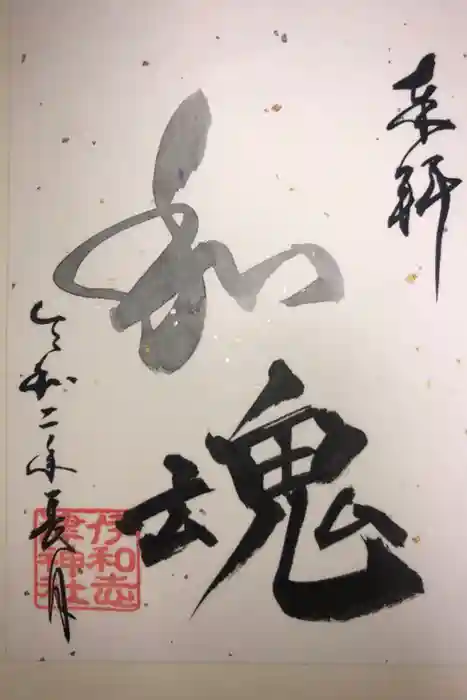 来拝
和魂
令和二年長月
伊和志
津神社